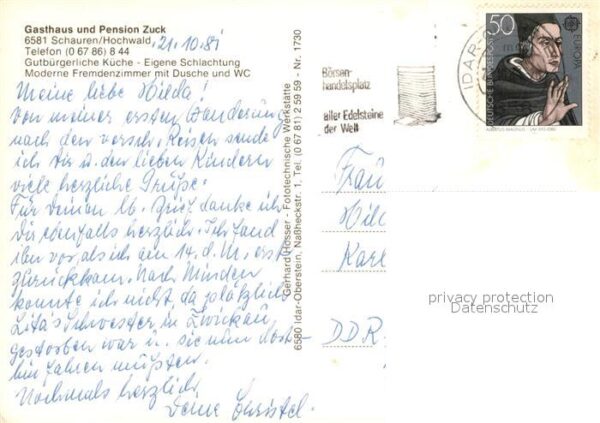 Gasthaus und Pension Zuck
6581 Schauren/Hochwald,
Telefon (0 67 86) 8 44
Gutbürgerliche Küche - Eigene Schlachtung
Moderne Fremdenzimmer mit Dusche und WC
21.10.81
Meine liebe Hilda!
Von meiner ersten Wanderung
nach den versch. Reisen sende
ich Dir u. den lieben Kindern
viele herzliche Grüße.
Für Deinen lb. Brief danke ich
Dir ebenfalls herzlich. Ich fand
ihn vor, als ich am 14. d. M. erst
zurückkam. Nach Minden
konnte ich nicht, da plötzlich
Schwester in Zwickau
gestorben war u. sie nun dort-
hin fahren mußten.
Nochmals herzlich
Deine Christel.
Gerhard Hosser - Fototechnische Werkstätte
6580 Idar-Oberstein, Naßheckstr. 1, Tel. (0 67 81) 2 59 59 - Nr. 1730
Börsen-
handelsplatz
aller Edelsteine
der Welt
IDAR-O
50
DEUTSCHE BUNDESPOST
EUROPA
ALBERTUS MAGNUS
Frau
Hild
Karl
DDR-
privacy protection
Datenschutz